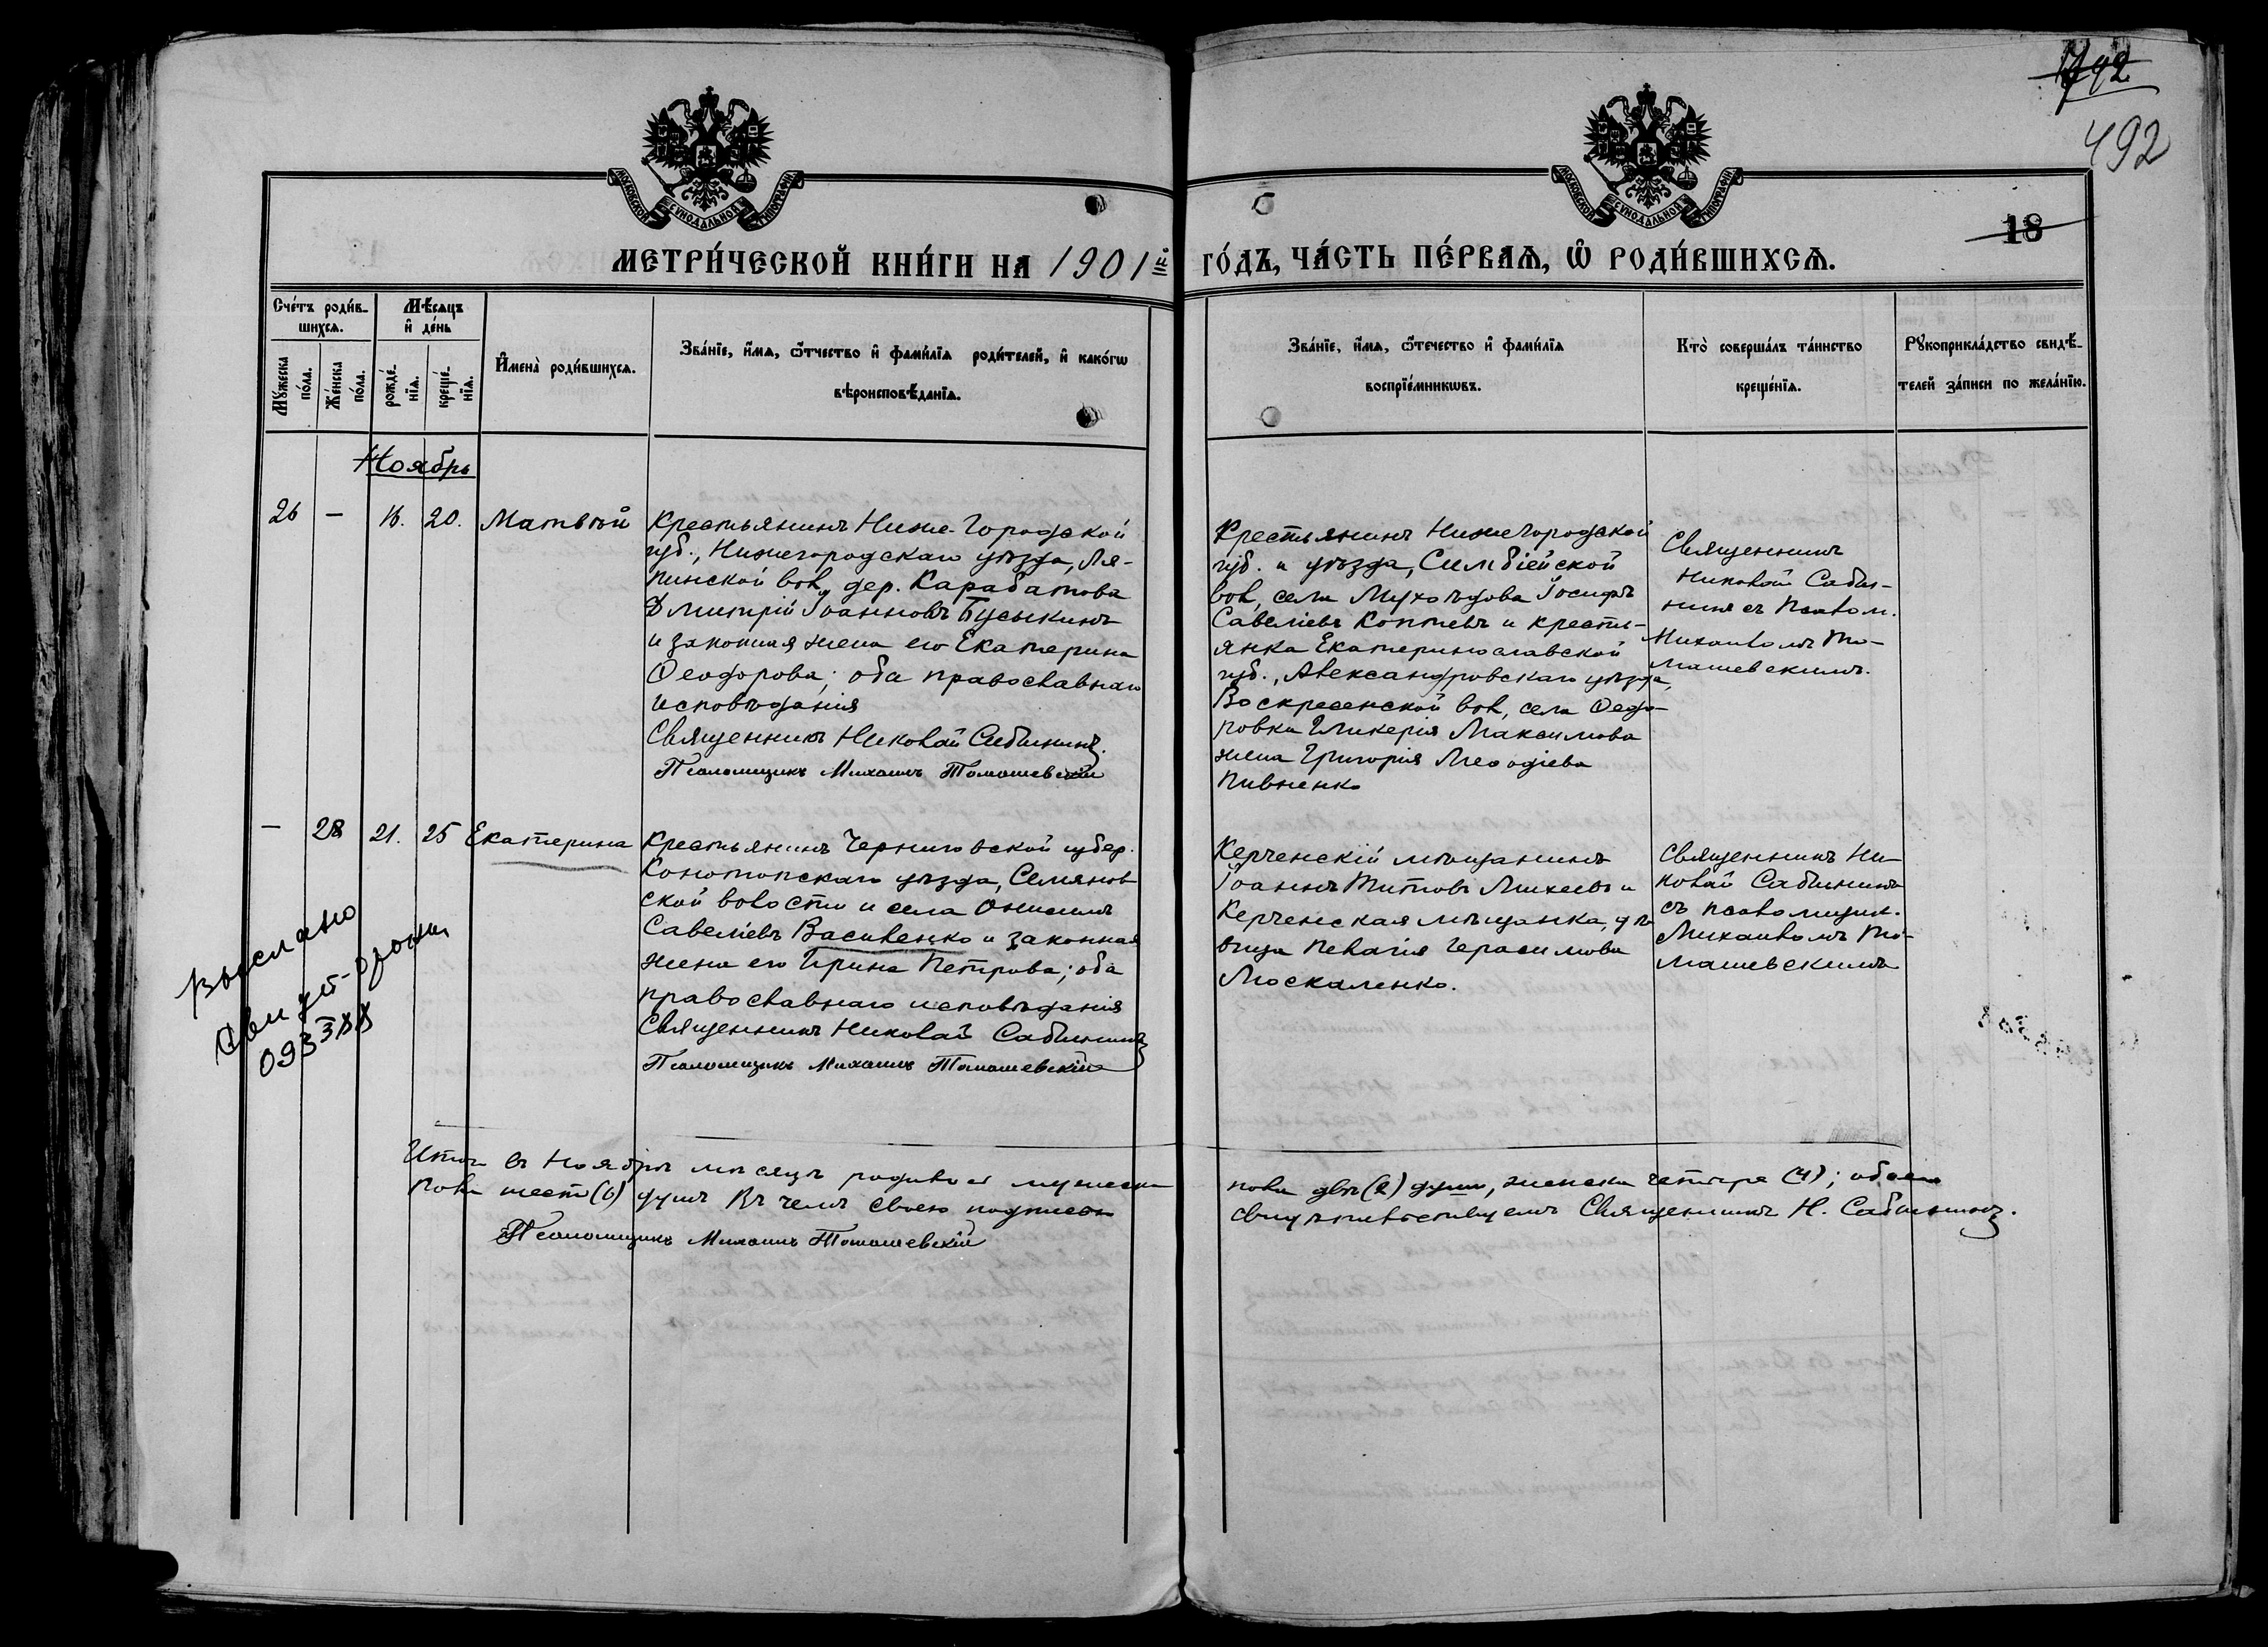 742
492
18
МОСКОВСКОЙ СѴНОДАЛЬНОЙ ТИПОГРАФІИ
МОСКОВСКОЙ СѴНОДАЛЬНОЙ ТИПОГРАФІИ
МЕТРИ́ЧЕСКОЙ КНИ́ГИ НА 1901й ГО́ДЪ, ЧА́СТЬ ПЕ́РВАѦ, Ѡ҆ РОДИ́ВШИХСѦ.
Сче́тъ роди́в-
шихсѧ.
Мѣсѧцъ
и҆ де́нь
Мꙋ́жеска по́ла.
Же́нска по́ла.
рожде́-
нїѧ.
креще́-
нїѧ.
И҆мена̀ роди́вшихсѧ.
Зва́нїе, и҆́мѧ, ѻ҆́тчество и҆ фами́лїѧ роди́телей, и҆ како́гѡ
вѣроисповѣ́данїѧ.
Зва́нїе, и҆́мѧ, ѻ҆́течество и҆ фами́лїѧ
воспрїе́мникѡвъ.
Кто̀ соверша́лъ та́инство
креще́нїѧ.
Рꙋкоприкла́дство свидѣ́-
телей за́писи по жела́нїю.
Ноябрь
26 — 16. 20. Матвѣй
Крестьянинъ Ниже-Городской
губ., Нижегородскаго уѣзда, Ля-
пинской вол, дер. Карабатова
Дмитрій Іоанновъ Бусыкинъ
и законная жена его Екатерина
Ѳеодорова; оба православнаго
исповѣданія
Священникъ Николай Сабининъ.
Псаломщикъ Михаилъ Томашевскій
Крестьянинъ Нижегородской
губ. и уѣзда, Симбіейской
вол, села Мухоѣдова Іосифъ
Савеліевъ Коптевъ и кресть-
янка Екатеринославской
губ., Александровскаго уѣзда,
Воскресенской вол, села Ѳедо-
ровки Гликерія Максимова
жена Григорія Меѳодіева
Пивненко
Священникъ
Николай Саби-
нинъ съ псалом.
Михаиломъ То-
машевскимъ.
— 28 21. 25 Екатерина
Крестьянинъ Черниговской губер.
Конотопскаго уѣзда, Семянов
ской волости и села Онисимъ
Савеліевъ Василенко и законная
жена его Ирина Петрова; оба
православнаго исповѣданія
Священникъ Николай Сабининъ
Псаломщикъ Михаилъ Томашевскій
Керченскій мѣщанинъ
Іоаннъ Титовъ Михеевъ и
Керченская мѣщанка, дѣ
вица Пелагія Герасимова
Москаленко.
Священникъ Ни-
колай Сабининъ
съ псаломщик.
Михаиломъ То-
машевскимъ
Выслано
Итого въ Ноябрѣ мѣсяцѣ родилось мужеска
пола двѣ (2) души, женска четыре (4); обоего
пола шесть (6) душъ Въ чемъ своею подписью
свидѣтельствуемъ Священникъ Н. Сабининъ.
Псаломщикъ Михаилъ Томашевскій